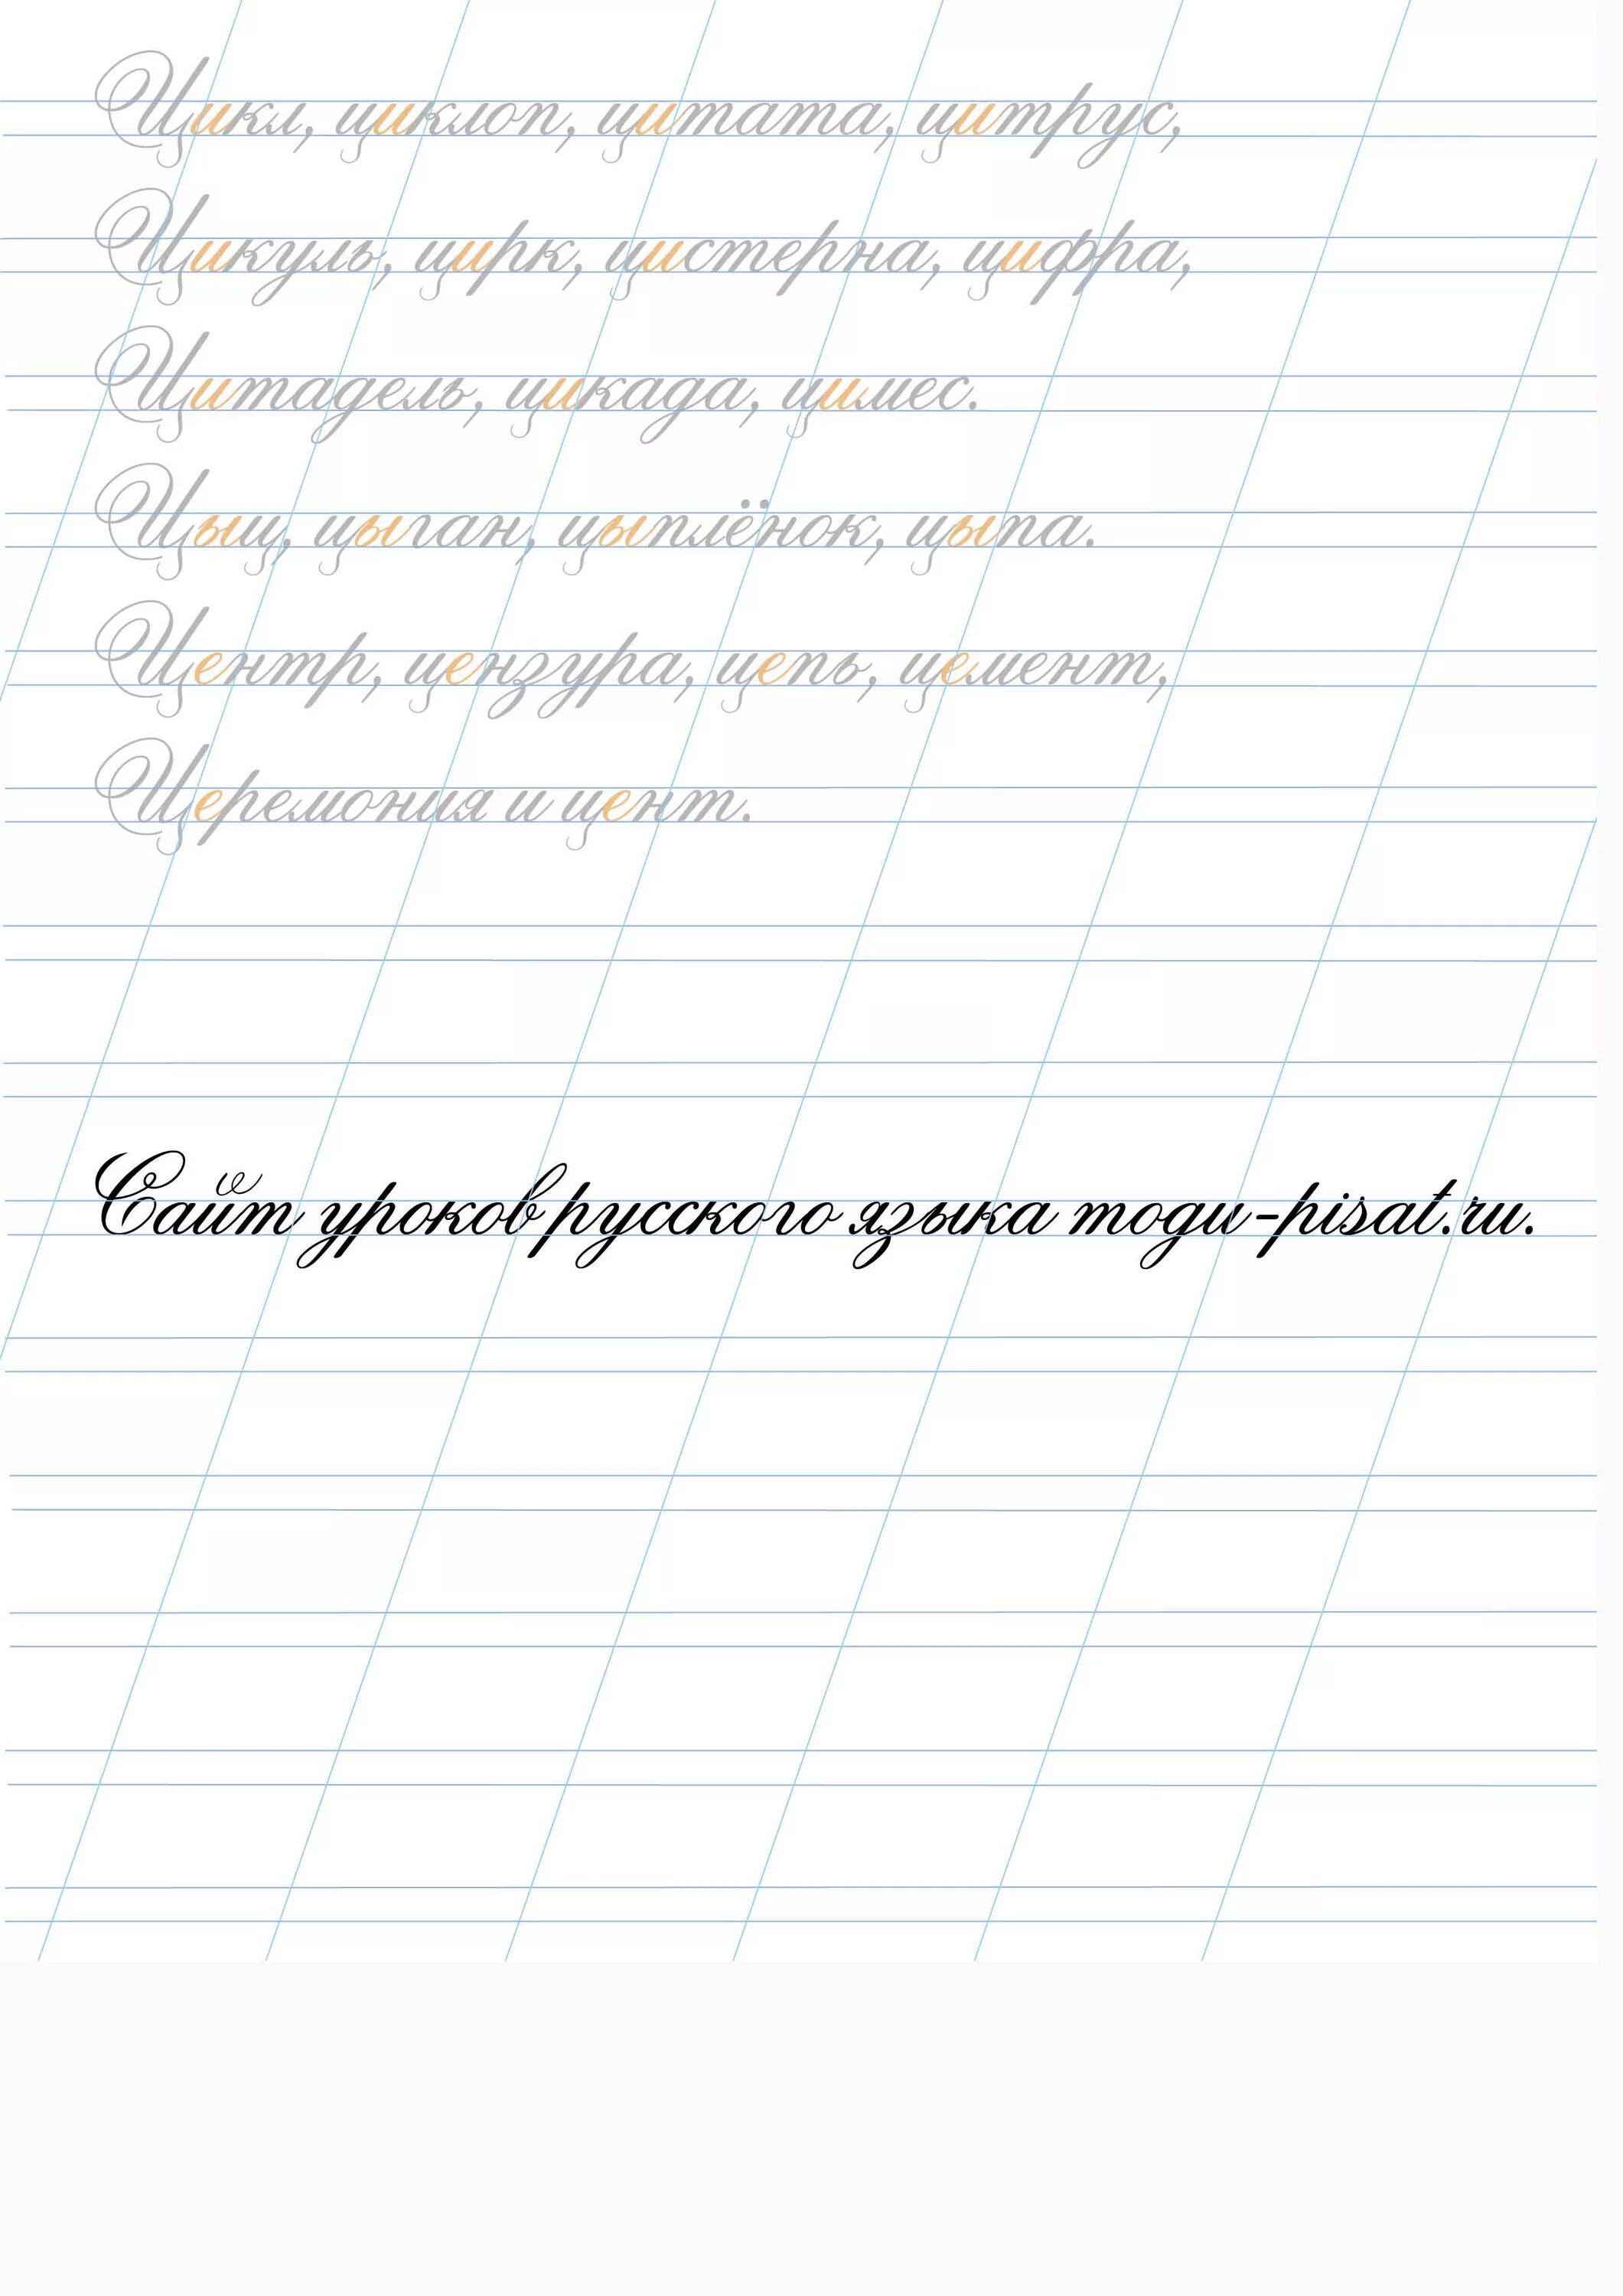 Цикл, циклоп, цитата, цитрус,
Цикуль, цирк, цистерна, цифра,
Цитадель, цикада, цимес.
Цыц, цыган, цыплёнок, цыпа.
Центр, цензура, цепь, цемент,
Церемония и цент.
Сайт уроков русского языка mogu-pisat.ru.